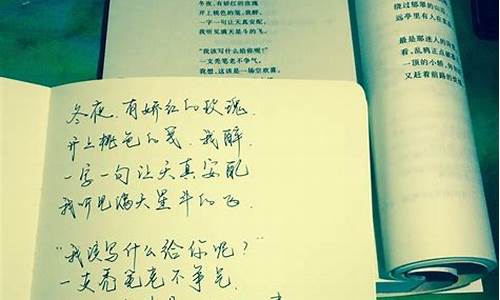 冬夜，有娇红的玫瑰
开上桃色的笺，我醉，
一字一句让天真安配，
我听见满天星斗的飞。
“我该写什么给你呢？”
一支秃笔老不争气。
我想，这该是一场空欢喜，
绕过郁翠的山
远亭里有人在
最是那迷人的
看，乱鸦正点破
一顶的小轿，
又赶着前路的
冬夜,有娇红的玫瑰.
开上桃色的笺.我醉.
一字一句让天真安配
我听见满天星斗的飞.
“我该写什么给你呢？”
一支秃笔老不争气.